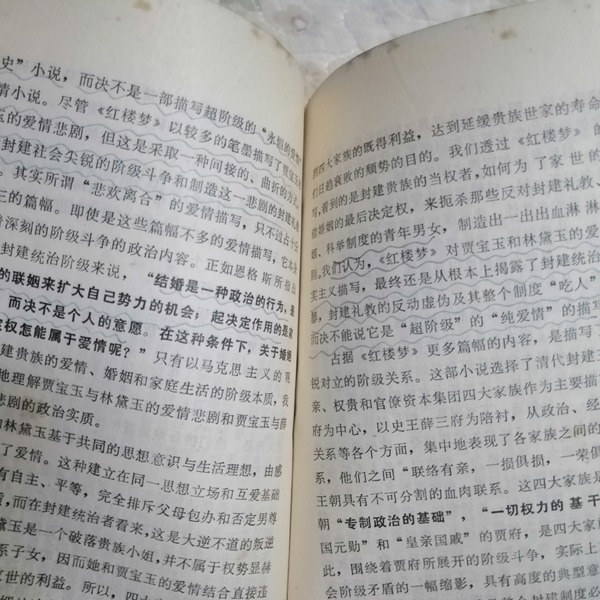 史”小说，而决不是一部描写超阶级的“永恒的爱情”
情小说。尽管《红楼梦》以较多的笔墨描写了贾宝玉
的爱情悲剧，但这是采取一种间接的、曲折的方式
封建社会尖锐的阶级斗争和制造这一悲剧的封建礼
。其实所谓“悲欢离合”的爱情描写，只不过占
三的篇幅。即使是这些篇幅不多的爱情描写，它本
深刻的阶级斗争的政治内容。正如恩格斯所指出
封建统治阶级来说，“结婚是一种政治的行为，是
的联姻来扩大自己势力的机会；起决定作用的是家
，而决不是个人的意愿。在这种条件下，关于婚姻
定权怎能属于爱情呢？”只有以马克思主义的观
建贵族的爱情、婚姻和家庭生活的阶级本质，我
地理解贾宝玉与林黛玉的爱情悲剧和贾宝玉与薛
悲剧的政治实质。
和林黛玉基于共同的思想意识与生活理想，由感
了爱情。这种建立在同一思想立场和互爱基础
有自主、平等，完全排斥父母包办和否定男尊
，而在封建统治者看来，这是大逆不道的叛逆
黛玉是一个破落贵族小姐，并不属于权势显赫
系子女，因而她和贾宝玉的爱情结合直接违
家世的利益。所以，四大
四大家族的既得利益，达到延缓贵族世家的寿命
们日趋衰败的颓势的目的。我们透过《红楼梦》的
，看到的是封建贵族的当权者，如何为了家世的
婚姻的最后决定权，来扼杀那些反对封建礼教、
、科举制度的青年男女，制造出一出出血淋淋
剧。我们认为，《红楼梦》对贾宝玉和林黛玉的爱
实主义描写，最终还是从根本上揭露了封建统治
，封建礼教的反动虚伪及其整个制度“吃人”
而决不能说它是“超阶级”的“纯爱情”的描写
占据《红楼梦》更多篇幅的内容，是描写了
锐对立的阶级关系。这部小说选择了清代封建王
亲、权贵和官僚资本集团四大家族作为主要描
府为中心，以史王薛三府为陪衬，从政治、经
关系等各个方面，集中地表现了各家族之间的
系，他们之间“联络有亲，一损俱损，一荣俱
王朝具有不可分割的血肉联系。这四大家族是
朝“专制政治的基础”，“一切权力的基干
国元勋”和“皇亲国戚”的贾府，是四大家族
此，围绕着贾府所展开的阶级斗争，实际上
会阶级矛盾的一幅缩影，具有高度的典型意